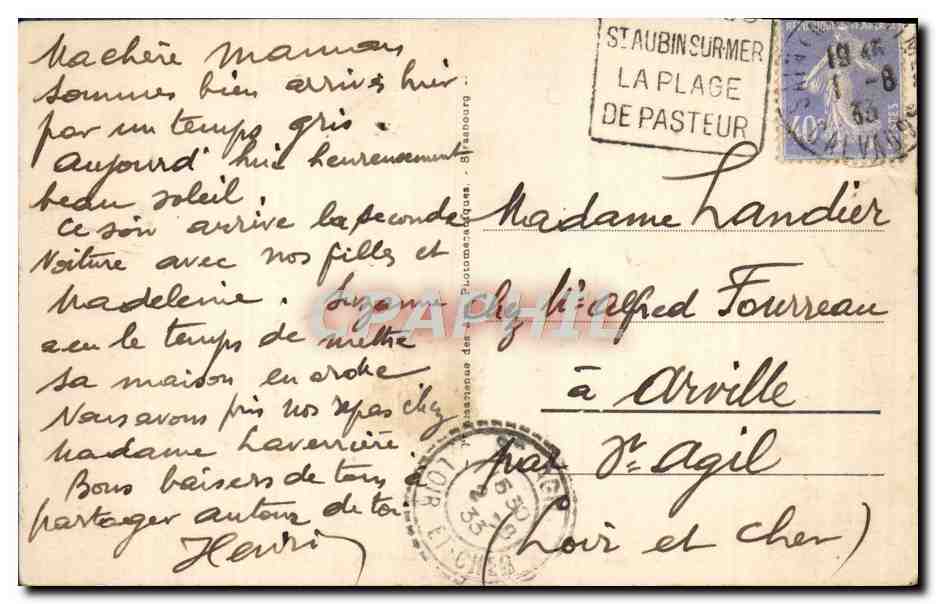 Ma chère Maman
Sommes bien arrivés hier
par un temps gris.
Aujourd'hui heureusement
beau soleil.
Ce soir arrive la seconde
Voiture avec nos filles et
Madeleine. Suzanne
a eu le temps de mettre
sa maison en ordre
Nous avons pris nos repas chez
Madame Laverrière.
Bons baisers de tous à
partager autour de toi
Henri
ST AUBIN SUR-MER
LA PLAGE
DE PASTEUR
19 45
1 -8
33
CALVADOS
40c
Strasbourg
Madame Landier
chez Mr Alfred Fourreau
à Arville
par St Agil
(Loir et Cher)
ST AGIL
6 30
2 -8
33
LOIR ET CHER
CPAPHIL